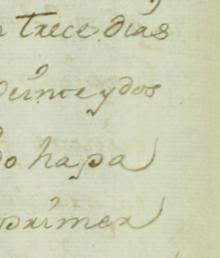 trece dias
veinte y dos
do hapa
primer